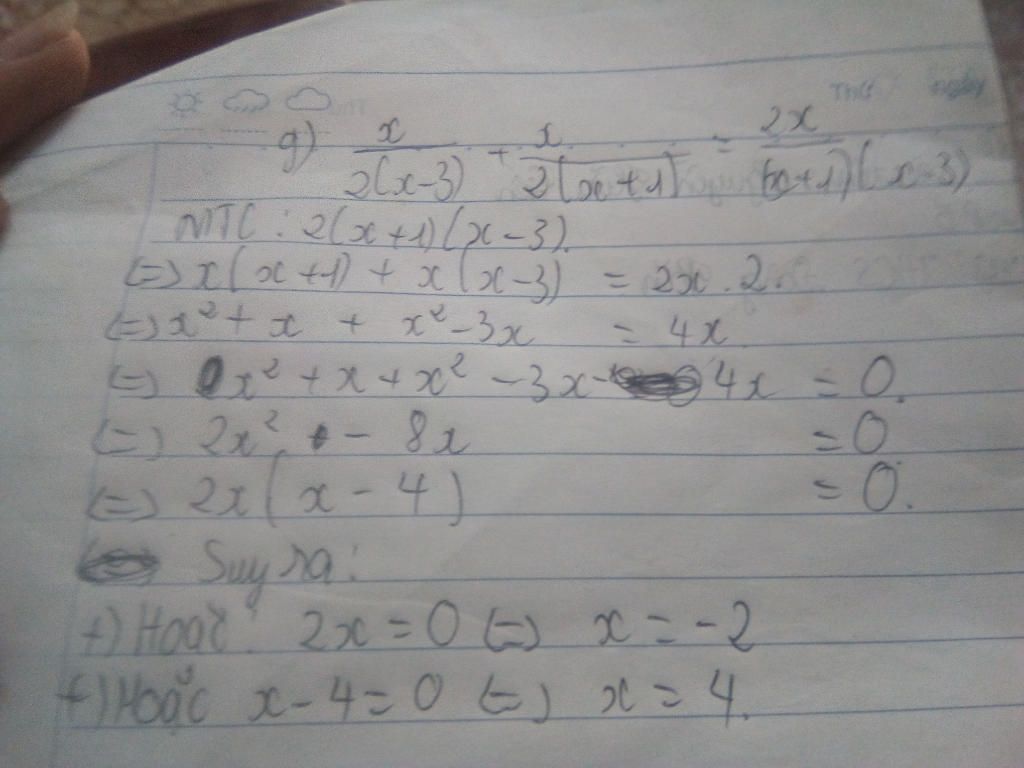 Thứ ngày
g) x/2(x-3) + x/2(x+1) = 2x/(x+1)(x-3)
MTC : 2(x+1)(x-3).
(=) x(x+1) + x(x-3) = 2x.2.
(=) x² + x + x² - 3x = 4x
(=) x² + x + x² - 3x - 4x = 0.
(=) 2x² - 8x = 0
(=) 2x(x - 4) = 0.
Suy ra :
+) Hoặc 2x = 0 (=) x = -2
+) Hoặc x - 4 = 0 (=) x = 4.